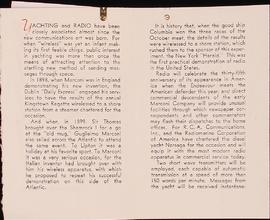 YACHTING and RADIO have been
closely associated almost since the
new communications art was born. For
when "wireless" was yet an infant mak-
ing its first feeble chirps, public interest
in yachting was more than once the
means of attracting attention to the
startling new method of sending mes-
sages through space.
In 1898, when Marconi was in England
demonstrating his new invention, the
Dublin "Daily Express" engaged his ser-
vices to have the results of the annual
Kingstown Regatta wirelessed to a shore
station from a steamer chartered for the
occasion.
And when, in 1899, Sir Thomas
brought over the Shamrock I for a go
at the "old mug," Guglielmo Marconi
also sailed across the Atlantic to attend
the same event. To Lipton it was a
holiday at his favorite sport. To Marconi
it was a very serious occasion, for the
Italian inventor had brought over with
him his wireless apparatus, with which
he proposed to repeat his successful
demonstration on this side of the
Atlantic.
It is history that, when the good ship
Columbia won the three races of the
October meet, the details of the results
were wirelessed to a shore station, which
rushed them to the sponsor of this exper-
iment, the New York "Herald." This was
the first practical demonstration of radio
in the United States.
Radio will celebrate the thirty-fifth
anniversary of its appearance in Amer-
ica when the Endeavour meets the
American defender this year; and direct
commercial descendants of the original
Marconi Company will provide unusual
facilities through which newspaper cor-
respondents and other commentators
may flash their dispatches to the home
offices. For R. C. A. Communications,
Inc., and the Radiomarine Corporation
of America have chartered the diesel
yacht Noroago for the occasion and will
equip it with the most modern radio
apparatus in commercial service today.
Two short wave transmitters will be
employed, each capable of automatic
transmission at a speed of more than
150 words per minute. Messages from
the yacht will be received instantane-